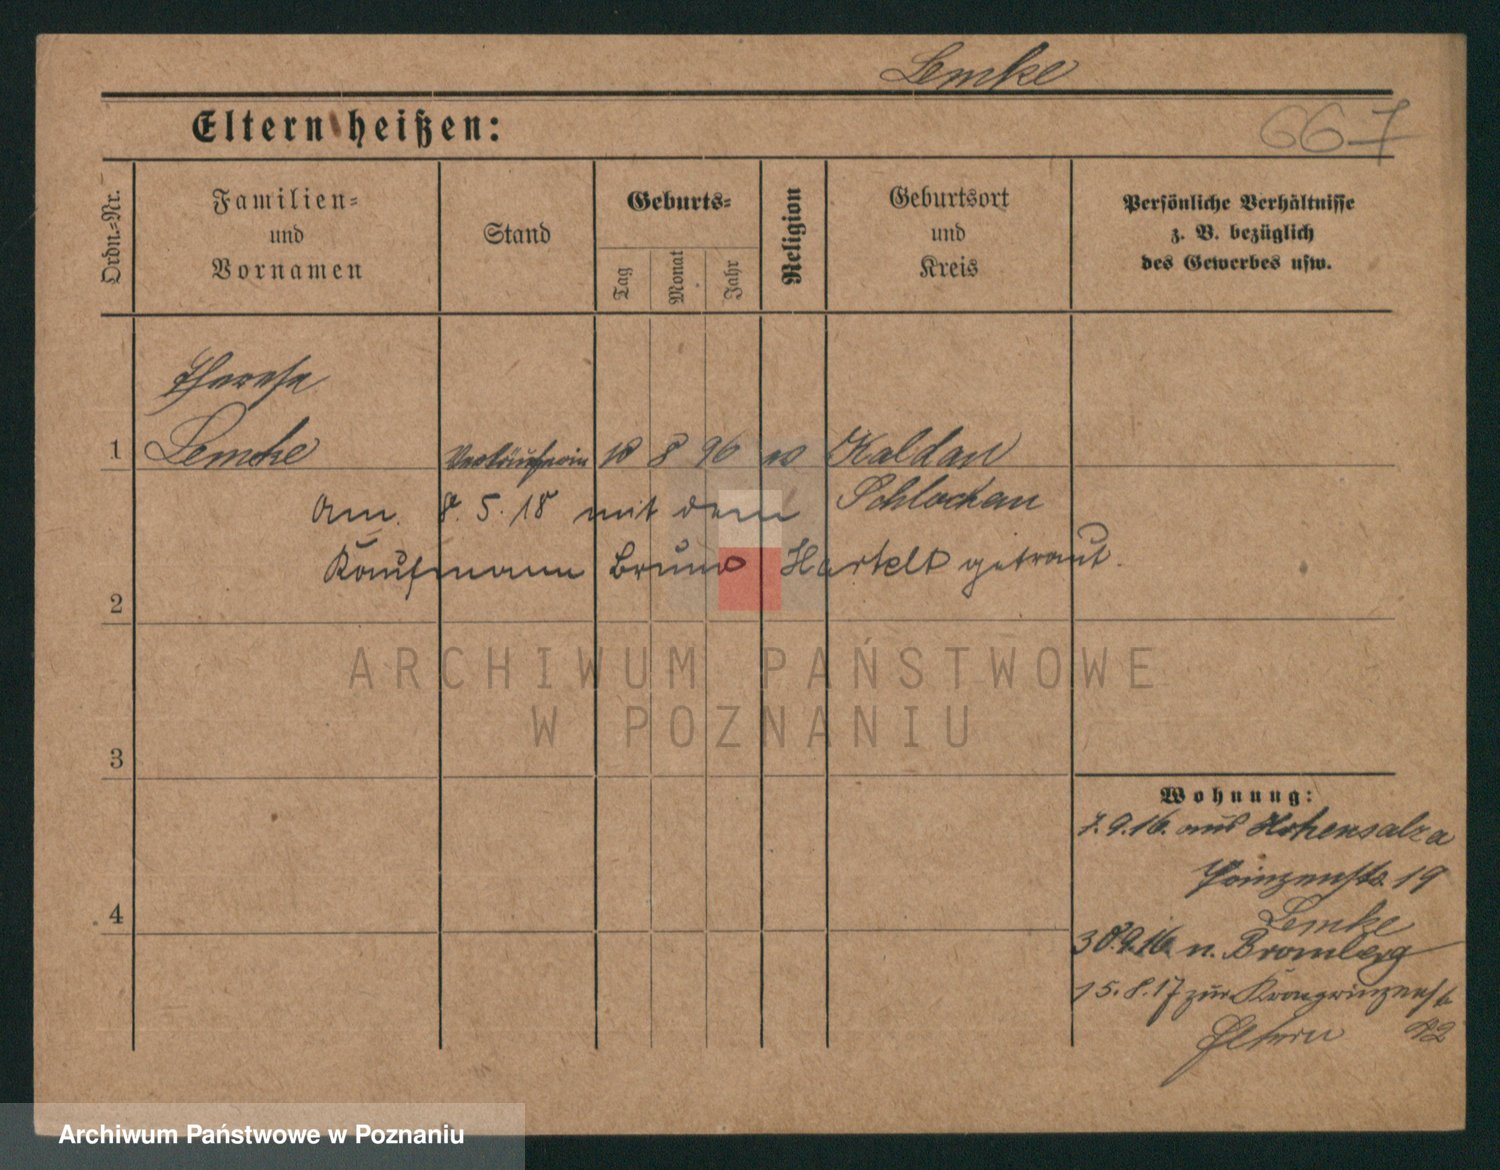 Lemke
Eltern heißen:
667
Ordn.-Nr.
Familien-
und
Vornamen
Stand
Geburts-
Tag
Monat
Jahr
Religion
Geburtsort
und
Kreis
Persönliche Verhältnisse
z. B. bezüglich
des Gewerbes usw.
Therese
1 Lemke Verkäuferin 18 8 96 ev Kaldau
Schlochau
am 8. 5. 18 mit dem
Kaufmann Bruno Hartelt getraut.
2
ARCHIWUM PAŃSTWOWE
W POZNANIU
3
Wohnung:
7.9.16. aus Hohensalza
Prinzenstr. 19
Lemke
4
30.9.16. n. Bromberg
15.8.17 zur Kronprinzenstr
Eltern 92
Archiwum Państwowe w Poznaniu